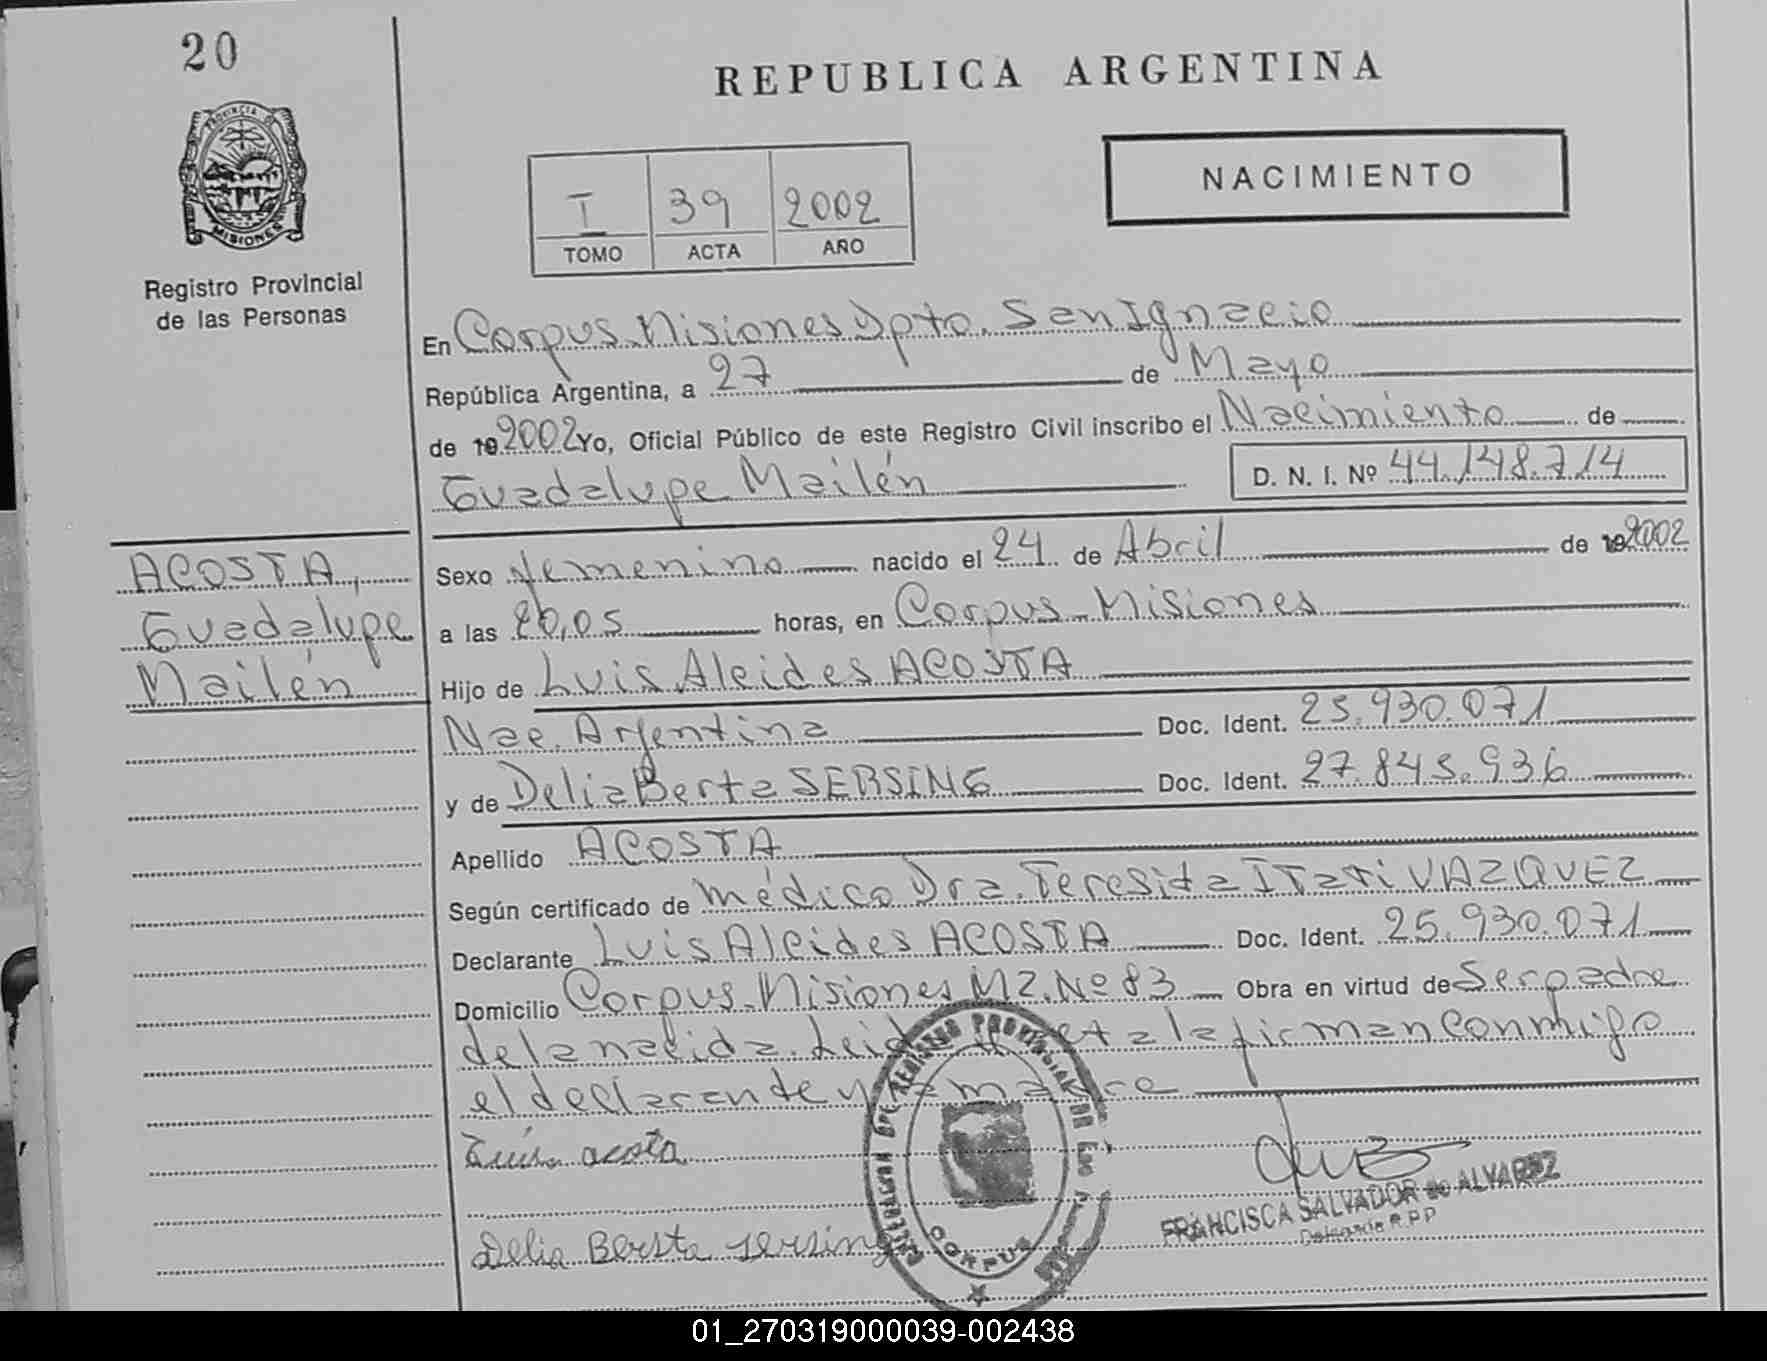 20
REPUBLICA ARGENTINA
PROVINCIA DE
MISIONES
NACIMIENTO
I 39 2002
TOMO ACTA AÑO
Registro Provincial
de las Personas
En Corpus Misiones Dpto. San Ignacio
República Argentina, a 27 de Mayo
de 19 2002 Yo, Oficial Público de este Registro Civil inscribo el Nacimiento de
Guadalupe Mailén D. N. I. Nº 44.148.714
ACOSTA,
Guadalupe
Mailén
Sexo femenino nacido el 24 de Abril de 19 2002
a las 20,05 horas, en Corpus Misiones
Hijo de Luis Alcides ACOSTA
Nac. Argentina Doc. Ident. 25.930.071
y de Delia Berta SERSING Doc. Ident. 27.845.936
Apellido ACOSTA
Según certificado de médico Dra. Teresita Itati VAZQUEZ
Declarante Luis Alcides ACOSTA Doc. Ident. 25.930.071
Domicilio Corpus Misiones MZ. Nº 83 Obra en virtud de Ser padre
de la nacida. Leida acta la firman conmigo
el declarante y la madre
Luis acosta
Delia Bersta sersing
DELEGACION DEL REGISTRO PROVINCIAL DE LAS
CORPUS
FRANCISCA SALVADOR de ALVAREZ
Delegada R.P.P
01_270319000039-002438